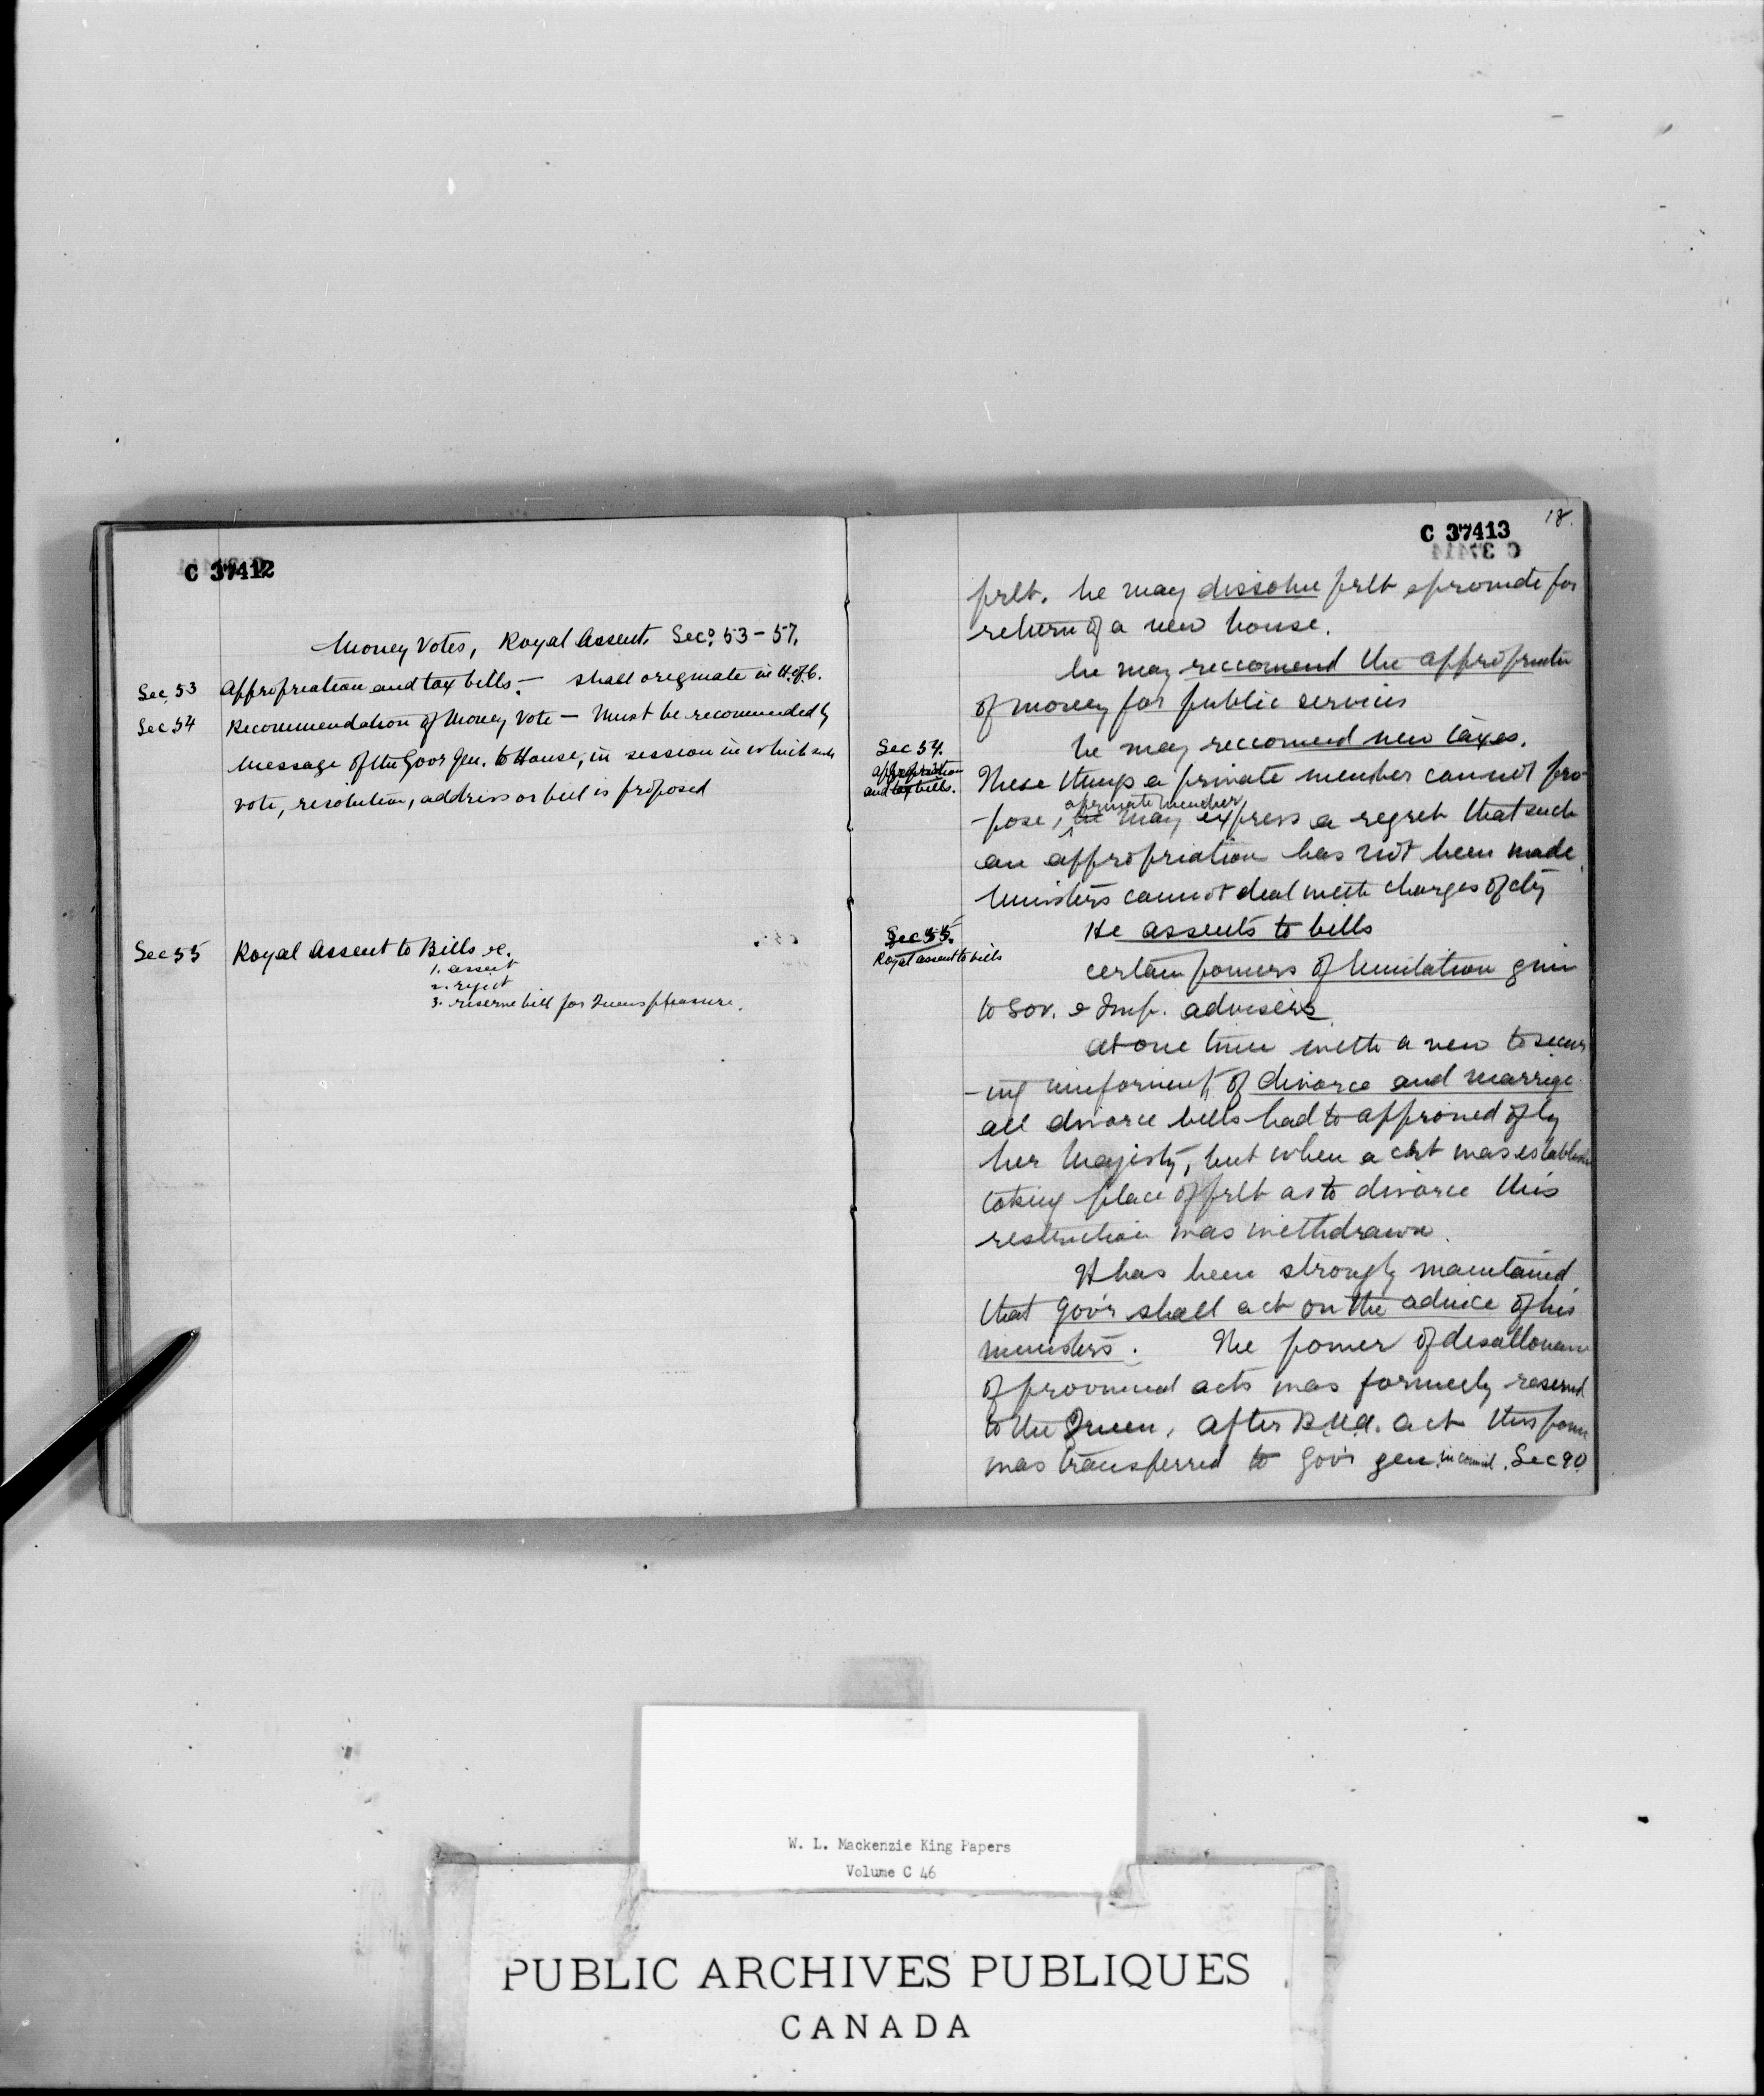 C 37412
Money Votes, Royal Assent. Secs. 53-57.
Sec 53 Appropriation and tax bills. — shall originate in H. of C.
Sec 54 Recommendation of Money Vote — Must be recommended by
Message of the Gov Gen. to House, in session in which such
vote, resolution, address or bill is proposed
Sec 55 Royal Assent to Bills &c.
1. assent
2. reject
3. reserve bill for Queens pleasure.
18.
C 37413
prlt. he may dissolve prlt & provide for
return of a new house.
he may reccomend the appropriation
of money for public services
he may reccomend new taxes.
Sec 54.
appropriation
and tax bills.
These things a private member cannot pro-
-pose, he a private member may express a regret that such
an appropriation has not been made.
Ministers cannot deal with charges of
He assents to bills
Sec 55.
Royal assent to bills
certain powers of limitation given
to Gov. & Imp. advisers
at one time with a view to secur
-ing of divorce and marriage
all divorce bills had to approved of by
her Majesty, but when a crt was established
taking place of prlt as to divorce this
restriction was withdrawn.
It has been strongly maintained
that Gov'r shall act on the advice of his
ministers. The power of disallowance
of provincial acts was formerly reserved
to the Queen, after B.N.A. act this power
was transferred to Gov'r gen. in council. Sec 90
W. L. Mackenzie King Papers
Volume C 46
PUBLIC ARCHIVES PUBLIQUES
CANADA